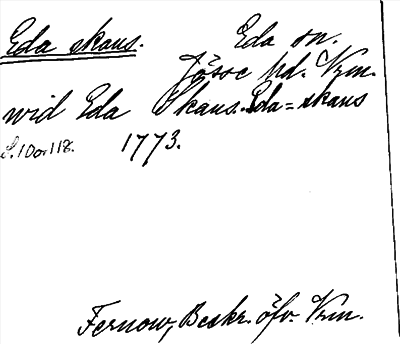 Eda skans.
Eda sn.
Jösse hd. Vrm.
wid Eda Skans. Eda=skans
S. 10 o. 118. 1773.
Fernow, Beskr. öfv. Vrm.